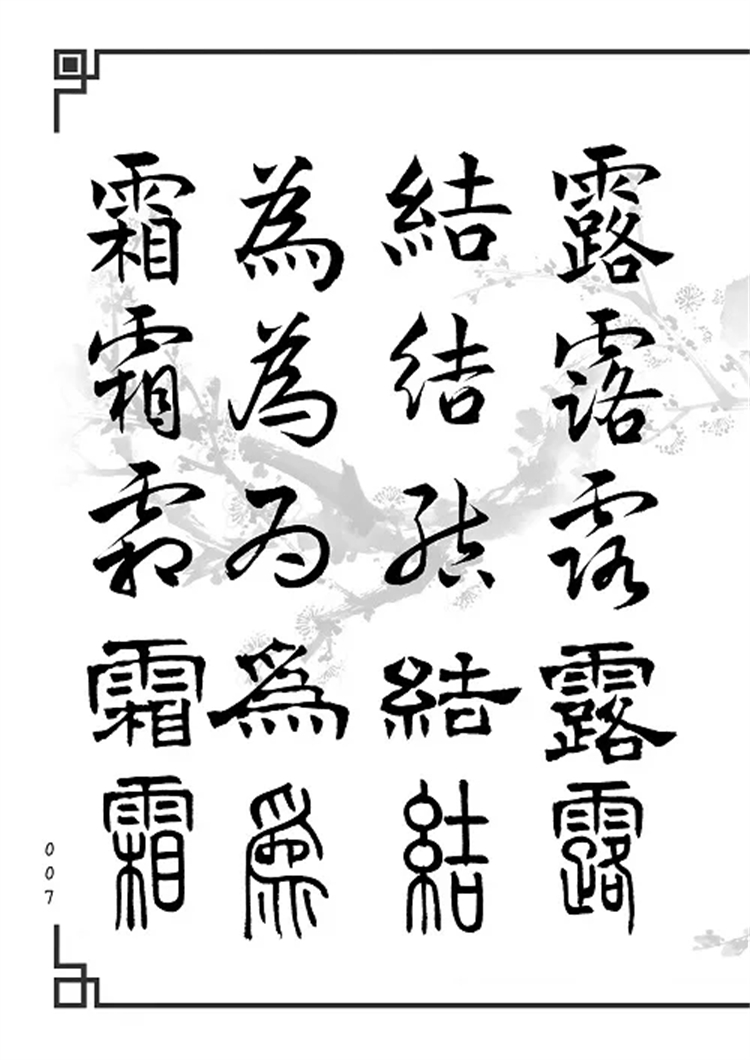 露結為霜
露結為霜
露結為霜
露結為霜
露結為霜
007